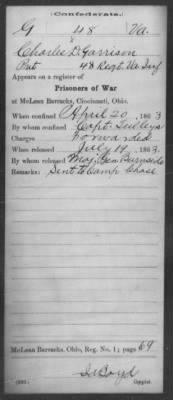 Confederate.
G 48 Va.
Charles D. Garrison
Pvt 48 Regt. Va. Inf
Appears on a register of
Prisoners of War
at McLean Barracks, Cincinnati, Ohio.
When confined April 20, 1863
By whom confined Capt.
Charges Forwarded
When released July 19, 1863.
By whom released Maj. Gen Burnside
Remarks: Sent to Camp Chase
McLean Barracks, Ohio, Reg. No. 1; page 69
Boyd
Copyist.